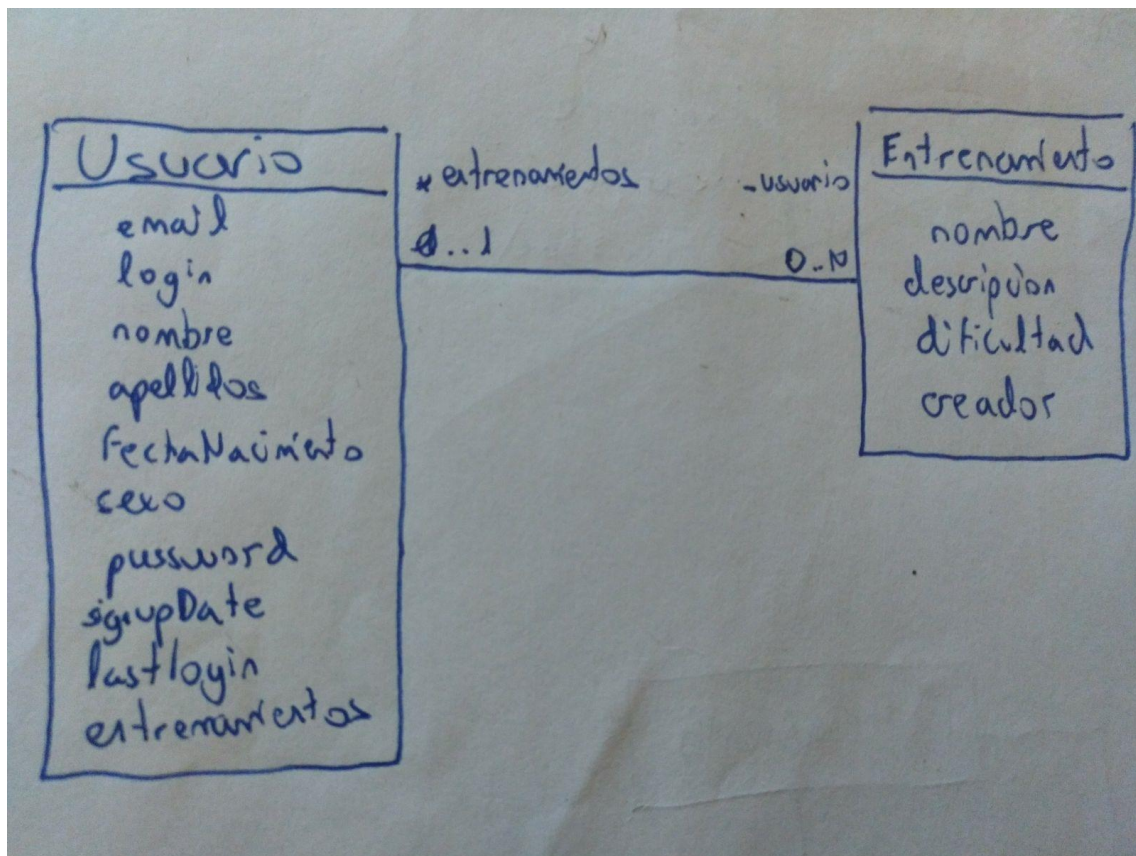 Usuario
email
login
nombre
apellidos
FechaNacimiento
sexo
password
signupDate
lastlogin
entrenamientos
* entrenamientos
0..1
- usuario
0..N
Entrenamiento
nombre
descripcion
dificultad
creador